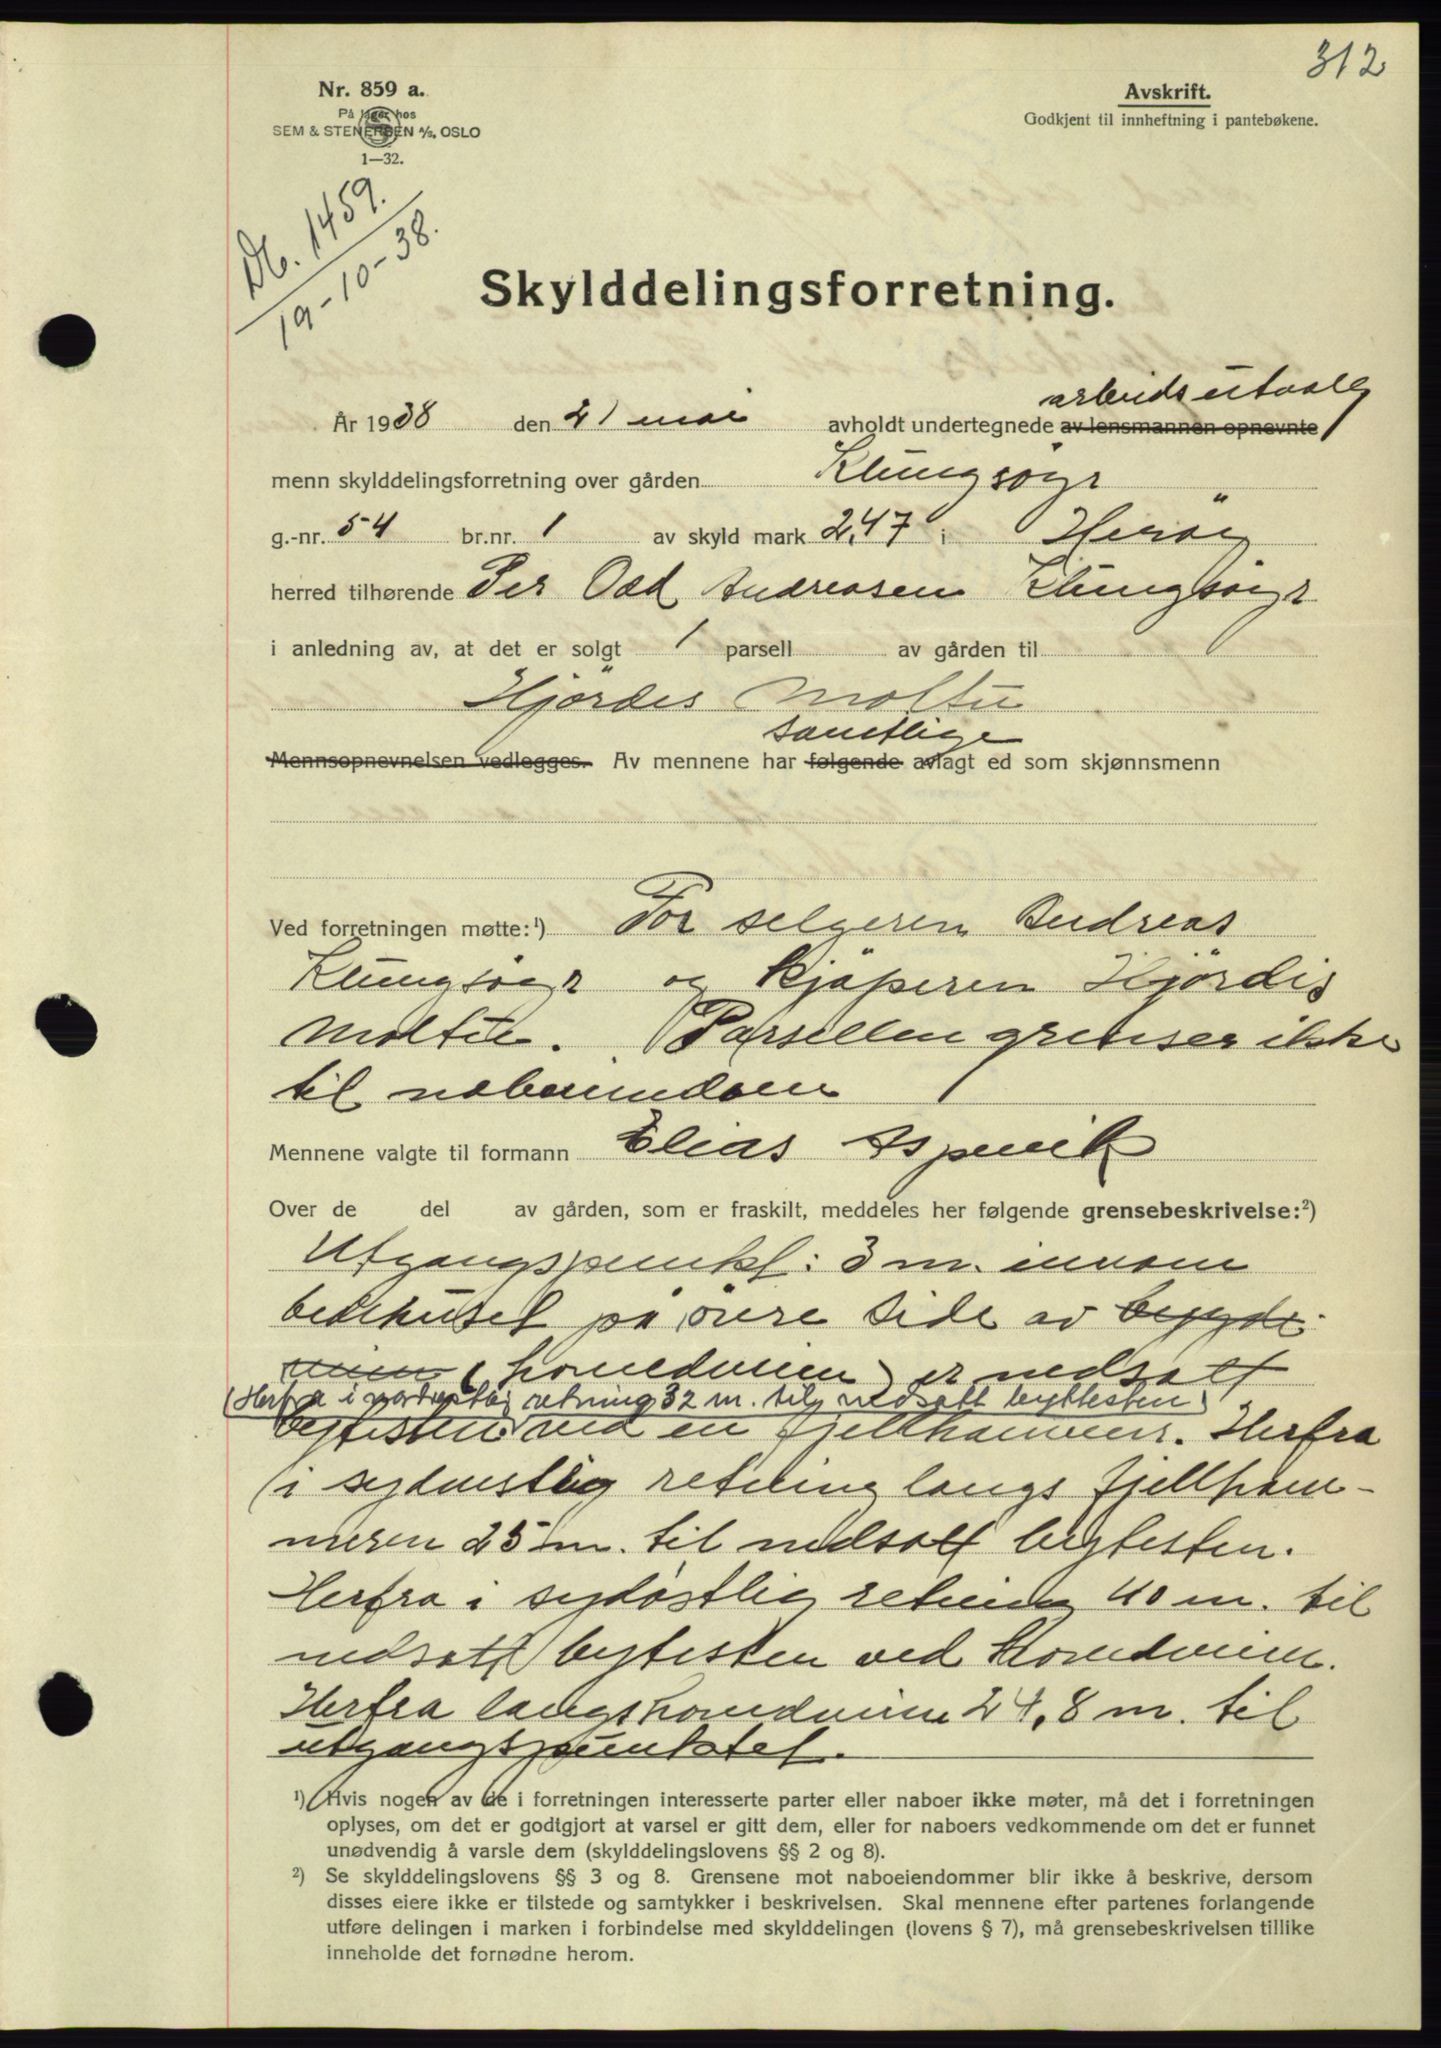 312
Nr. 859 a.
På lager hos
SEM & STENERSEN A/S, OSLO
1—32.
Avskrift.
Godkjent til innheftning i pantebøkene.
Db. 1459.
19-10-38.
Skylddelingsforretning.
arbeidsutvalg
År 1938 den 21 mai avholdt undertegnede av lensmannen opnevnte
menn skylddelingsforretning over gården Klungsøyr
g.-nr. 54 br.nr. 1 av skyld mark 2,47 i Herøy
herred tilhørende Per Odd Andreasen Klungsøyr
i anledning av, at det er solgt 1 parsell av gården til
Hjördis Moltu
samtlige
Mennsopnevnelsen vedlegges. Av mennene har følgende avlagt ed som skjønnsmenn
Ved forretningen møtte:¹) For selgeren Andreas
Klungsöyr og kjöperen Hjördis
Moltu. Parsellen grenser ikke
til naboeiendom
Mennene valgte til formann Elias Aspevik
Over de del av gården, som er fraskilt, meddeles her følgende grensebeskrivelse:²)
Utgangspunkt: 3 m. innom
bedehuset på övre side av bygde
veien (hovedveien) er nedsatt
(Herfra i nordvestlig retning 32 m. til nedsatt byttesten)
bytesten ved en fjellhammer. Herfra
i sydvestlig retning langs fjellham-
meren 25 m. til nedsatt bytesten.
Herfra i sydöstlig retning 40 m. til
nedsatt bytesten ved hovedveien.
Herfra langs hovedveien 24,8 m. til
utgangspunktet.
¹) Hvis nogen av de i forretningen interesserte parter eller naboer ikke møter, må det i forretningen
oplyses, om det er godtgjort at varsel er gitt dem, eller for naboers vedkommende om det er funnet
unødvendig å varsle dem (skylddelingslovens §§ 2 og 8).
²) Se skylddelingslovens §§ 3 og 8. Grensene mot naboeiendommer blir ikke å beskrive, dersom
disses eiere ikke er tilstede og samtykker i beskrivelsen. Skal mennene efter partenes forlangende
utføre delingen i marken i forbindelse med skylddelingen (lovens § 7), må grensebeskrivelsen tillike
inneholde det fornødne herom.